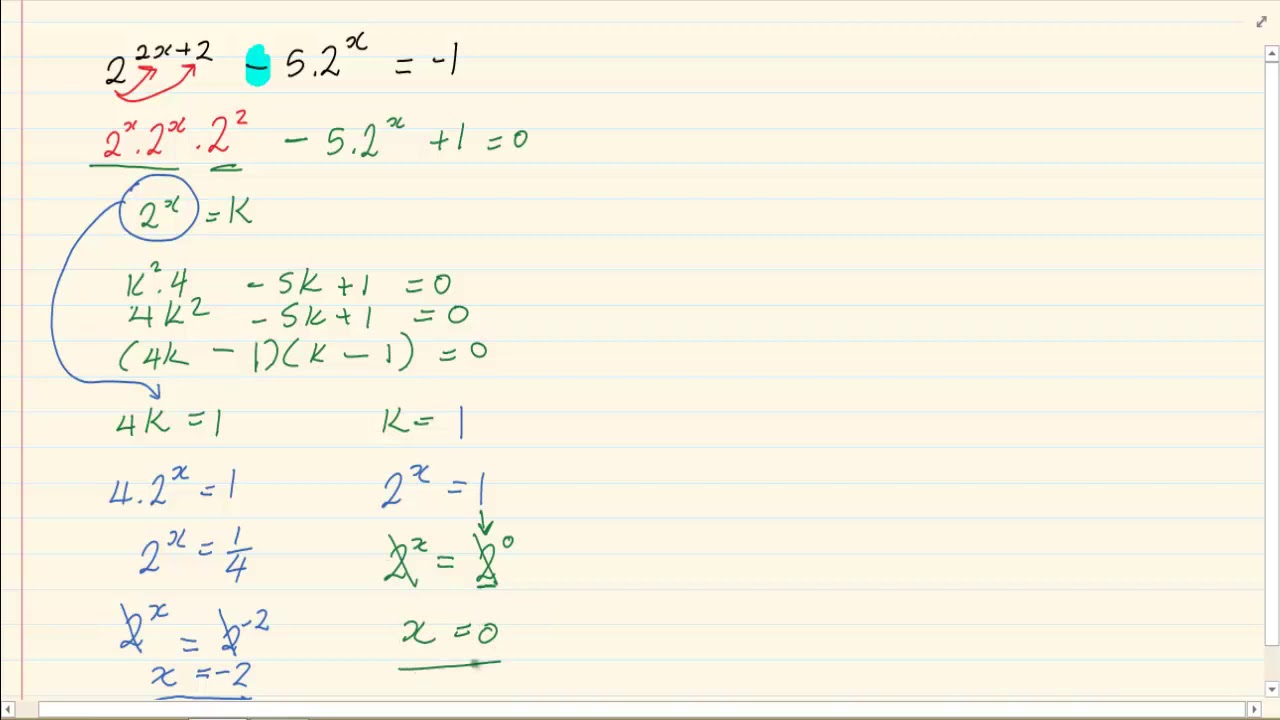 2^{2x+2} - 5.2^x = -1
2^x.2^x.2^2 - 5.2^x +1 = 0
2^x = K
K^2.4 - 5K + 1 = 0
4K^2 - 5K + 1 = 0
(4K - 1)(K - 1) = 0
4K = 1 K = 1
4.2^x = 1 2^x = 1
2^x = 1/4 2^x = 2^0
2^x = 2^{-2} x = 0
x = -2